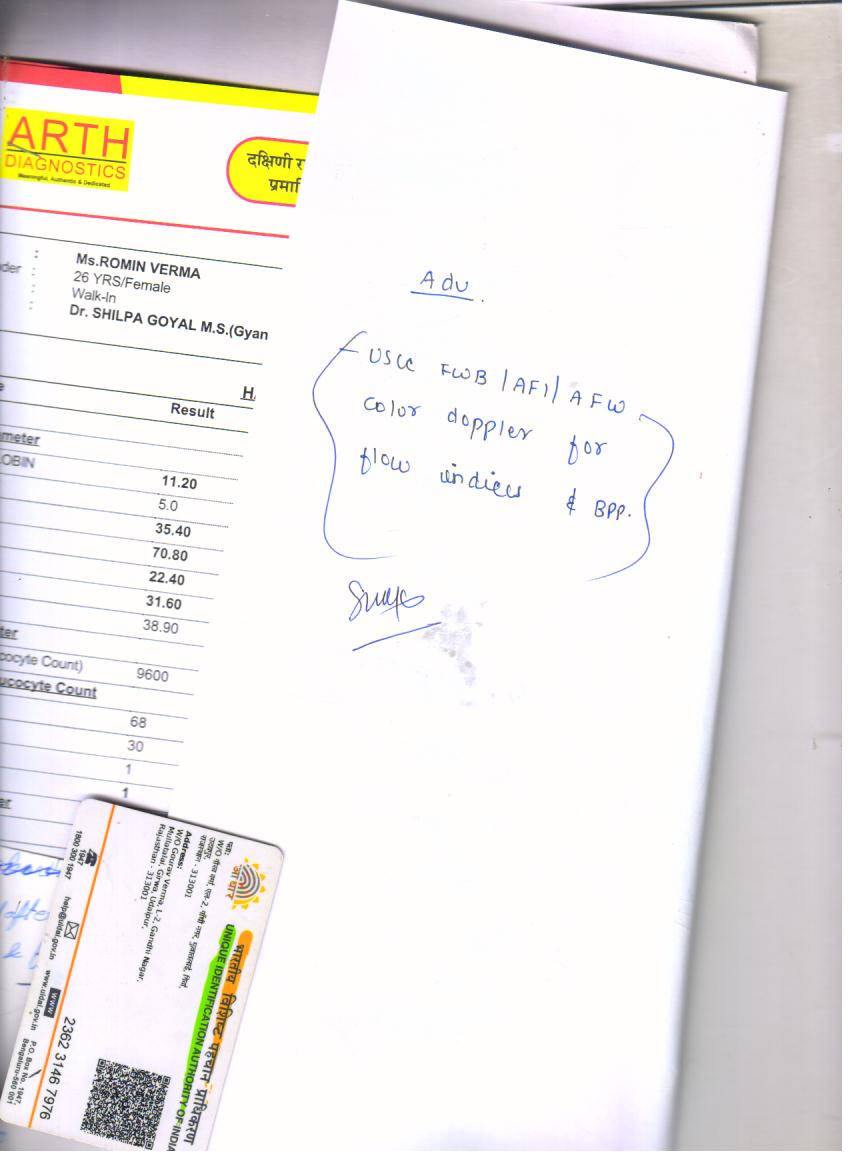 ARTH
DIAGNOSTICS
Meaningful, Authentic & Dedicated
दक्षिणी रा
प्रमाि
Ms.ROMIN VERMA
26 YRS/Female
Walk-In
Dr. SHILPA GOYAL M.S.(Gyan
Result
OBIN
11.20
5.0
35.40
70.80
22.40
31.60
38.90
ocyte Count)
9600
ucocyte Count
68
30
1
1
Adv.
USG FWB / AFI / AFW
color doppler for
flow indices & BPP.
भारतीय विशिष्ट पहचान प्राधिकरण
UNIQUE IDENTIFICATION AUTHORITY OF INDIA
Address:
W/O Gourav Verma, L-2, Gandhi Nagar,
Mullatalai, Girwa, Udaipur,
Rajasthan - 313001
2362 3146 7976
1947
1800 300 1947
help@uidai.gov.in
www
www.uidai.gov.in
P.O. Box No. 1947,
Bengaluru-560 001